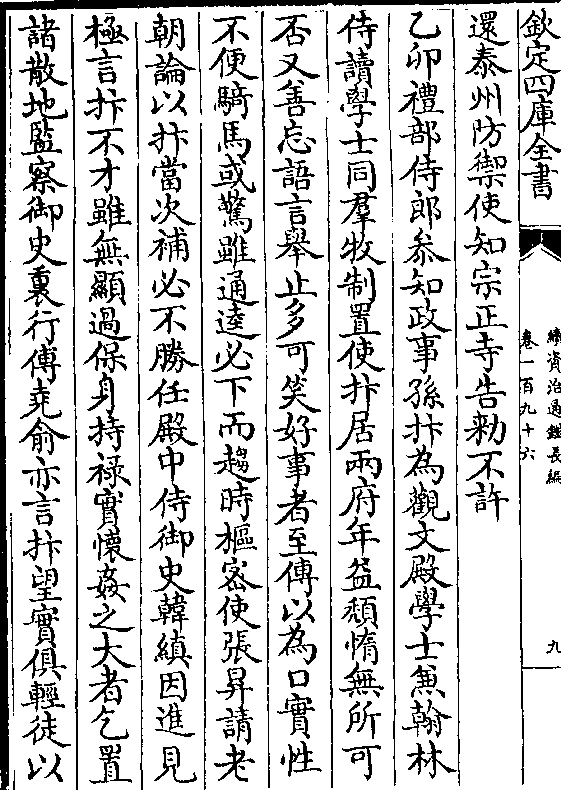 欽定四庫全書
續資治通鑑長編
卷一百九十六
九
還泰州防禦使知宗正寺告勑不許
乙卯禮部侍郎叅知政事孫抃為觀文殿學士兼翰林
侍讀學士同羣牧制置使抃居兩府年益頹惰無所可
否又善忘語言舉止多可笑好事者至傳以為口實性
不便騎馬或驚雖通逵必下而趨時樞密使張昇請老
朝論以抃當次補必不勝任殿中侍御史韓縝因進見
極言抃不才雖無顯過保身持禄實懷姦之大者乞置
諸散地監察御史裏行傅堯俞亦言抃望實俱輕徒以